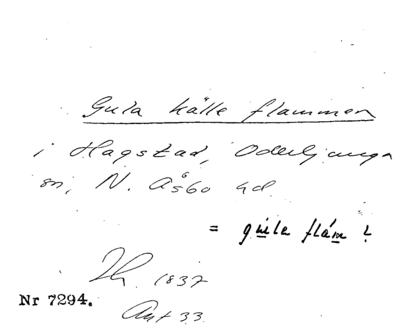 Gula källe flammen
i Hagstad, Oderljunga
sn, N. Åsbo hd.
= gula flám ?
1837
Nr 7294.
Ant 33.